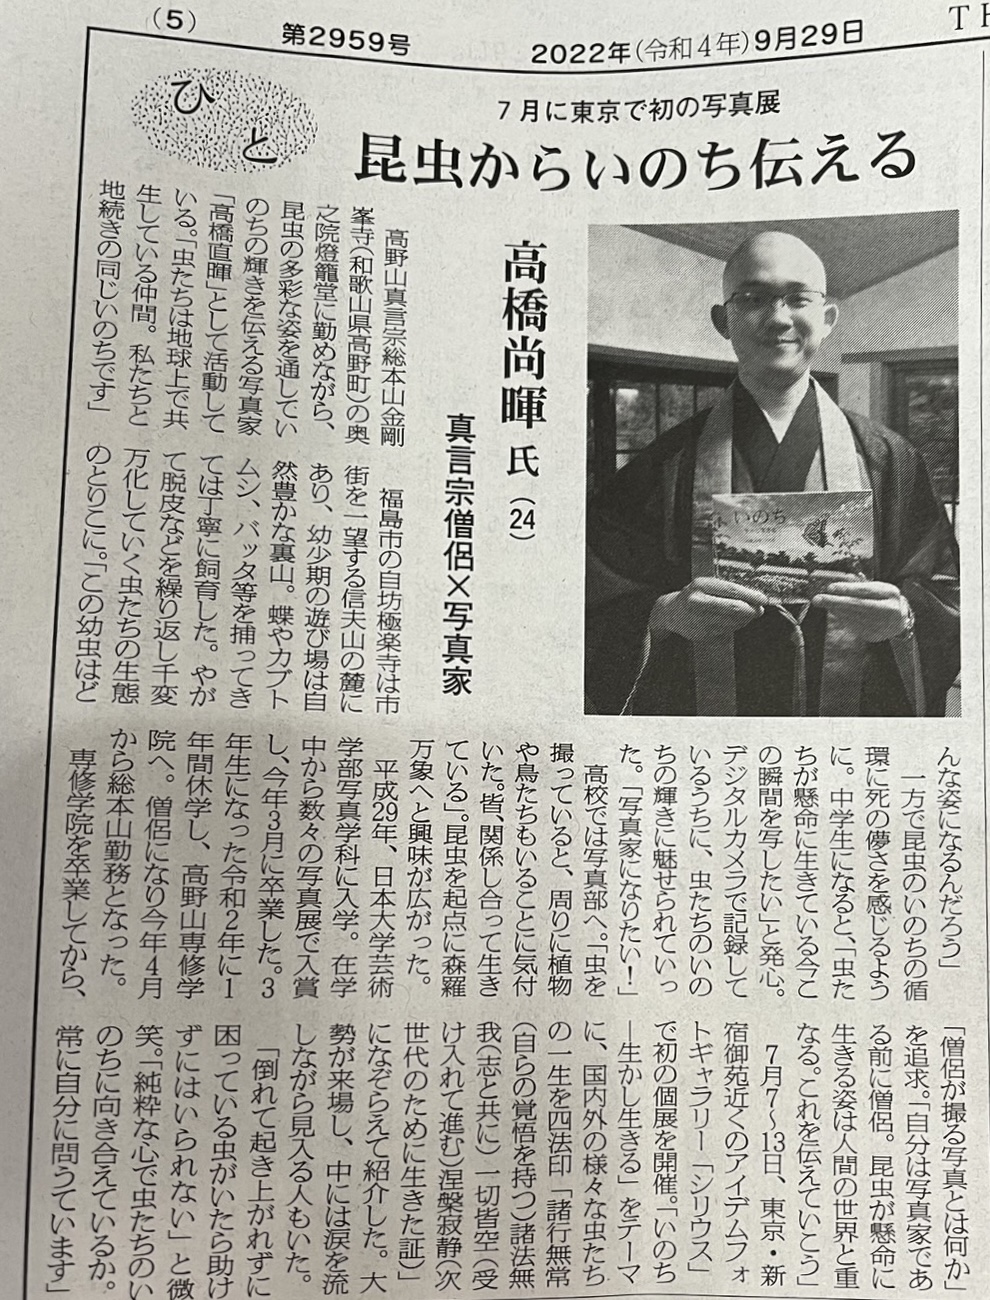 (5)
第2959号
2022年(令和4年)9月29日
TH
ひと
7月に東京で初の写真展
昆虫からいのち伝える
高橋尚暉氏(24)
真言宗僧侶×写真家
いのち
高野山真言宗総本山金剛
峯寺(和歌山県高野町)の奥
之院燈籠堂に勤めながら、
昆虫の多彩な姿を通してい
のちの輝きを伝える写真家
「高橋直暉」として活動して
いる。「虫たちは地球上で共
生している仲間。私たちと
地続きの同じいのちです」
福島市の自坊極楽寺は市
街を一望する信夫山の麓に
あり、幼少期の遊び場は自
然豊かな裏山。蝶やカブト
ムシ、バッタ等を捕ってき
ては丁寧に飼育した。やが
て脱皮などを繰り返し千変
万化していく虫たちの生態
のとりこに。「この幼虫はど
んな姿になるんだろう」
一方で昆虫のいのちの循
環に死の儚さを感じるよう
に。中学生になると、「虫た
ちが懸命に生きている今こ
の瞬間を写したい」と発心。
デジタルカメラで記録して
いるうちに、虫たちのいの
ちの輝きに魅せられていっ
た。「写真家になりたい!」
高校では写真部へ。「虫を
撮っていると、周りに植物
や鳥たちもいることに気付
いた。皆、関係し合って生き
ている」。昆虫を起点に森羅
万象へと興味が広がった。
平成29年、日本大学芸術
学部写真学科に入学。在学
中から数々の写真展で入賞
し、今年3月に卒業した。3
年生になった令和2年に1
年間休学し、高野山専修学
院へ。僧侶になり今年4月
から総本山勤務となった。
専修学院を卒業してから、
「僧侶が撮る写真とは何か」
を追求。「自分は写真家であ
る前に僧侶。昆虫が懸命に
生きる姿は人間の世界と重
なる。これを伝えていこう」
7月7~13日、東京・新
宿御苑近くのアイデムフォ
トギャラリー「シリウス」
で初の個展を開催。「いのち
―生かし生きる」をテーマ
に、国内外の様々な虫たち
の一生を四法印「諸行無常
(自らの覚悟を持つ)諸法無
我(志と共に)一切皆空(受
け入れて進む)涅槃寂静(次
世代のために生きた証)」
になぞらえて紹介した。大
勢が来場し、中には涙を流
しながら見入る人もいた。
「倒れて起き上がれずに
困っている虫がいたら助け
ずにはいられない」と微
笑。「純粋な心で虫たちのい
のちに向き合えているか。
常に自分に問うています」